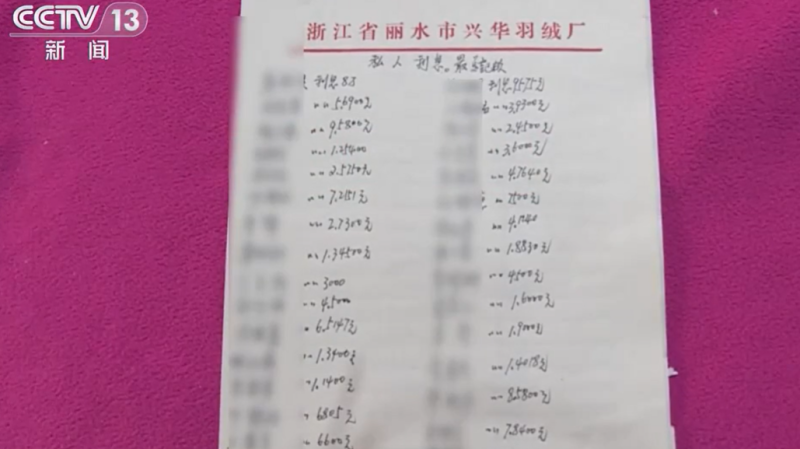 CCTV 13
新闻
浙江省丽水市兴华羽绒厂
私人利息。最
利息83 利息9575元
"" 5.6900元 "" 3.9300元
"" 9.5800元 "" 2.4500元
"" 1.25400 "" 3.6000元
"" 2.5750元 "" 4.7640元
"" 7.2151元 "" 7500元
"" 2.7300元 "" 4.1040
"" 1.34500元 "" 1.8830元
"" 3000 "" 4500元
"" 4.5000 "" 1.6000元
" 6.5147元 "" 1.9000元
"" 1.3400元 "" 1.4018元
"" 1.1400元 "" 8.5800元
"" 6805元 "" 7.8400元
"" 6600元